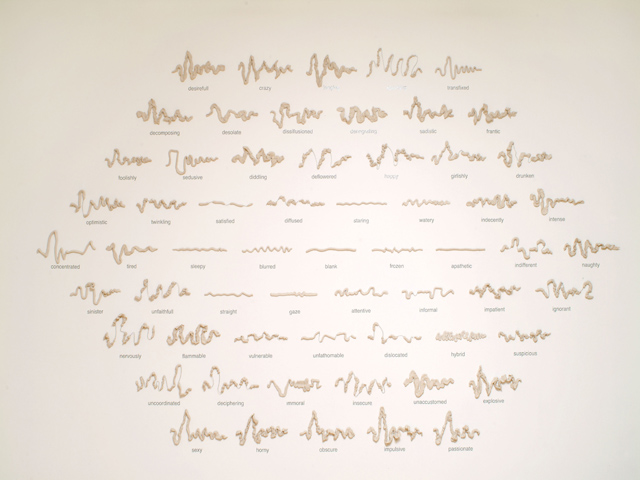 crazy
decomposing desolate disillusioned sadistic frantic
foolishly fiddling deflowered girlishly drunken
optimistic twinkling satisfied diffused staring watery indecently intense
concentrated tired sleepy blurred blank frozen apathetic indifferent naughty
sinister unfaithfull straight gaze attentive informal impatient ignorant
nervously flammable vulnerable unfathomable dislocated hybrid suspicious
uncoordinated deciphering immoral insecure unaccustomed explosive
sexy horny obscure impulsive passionate